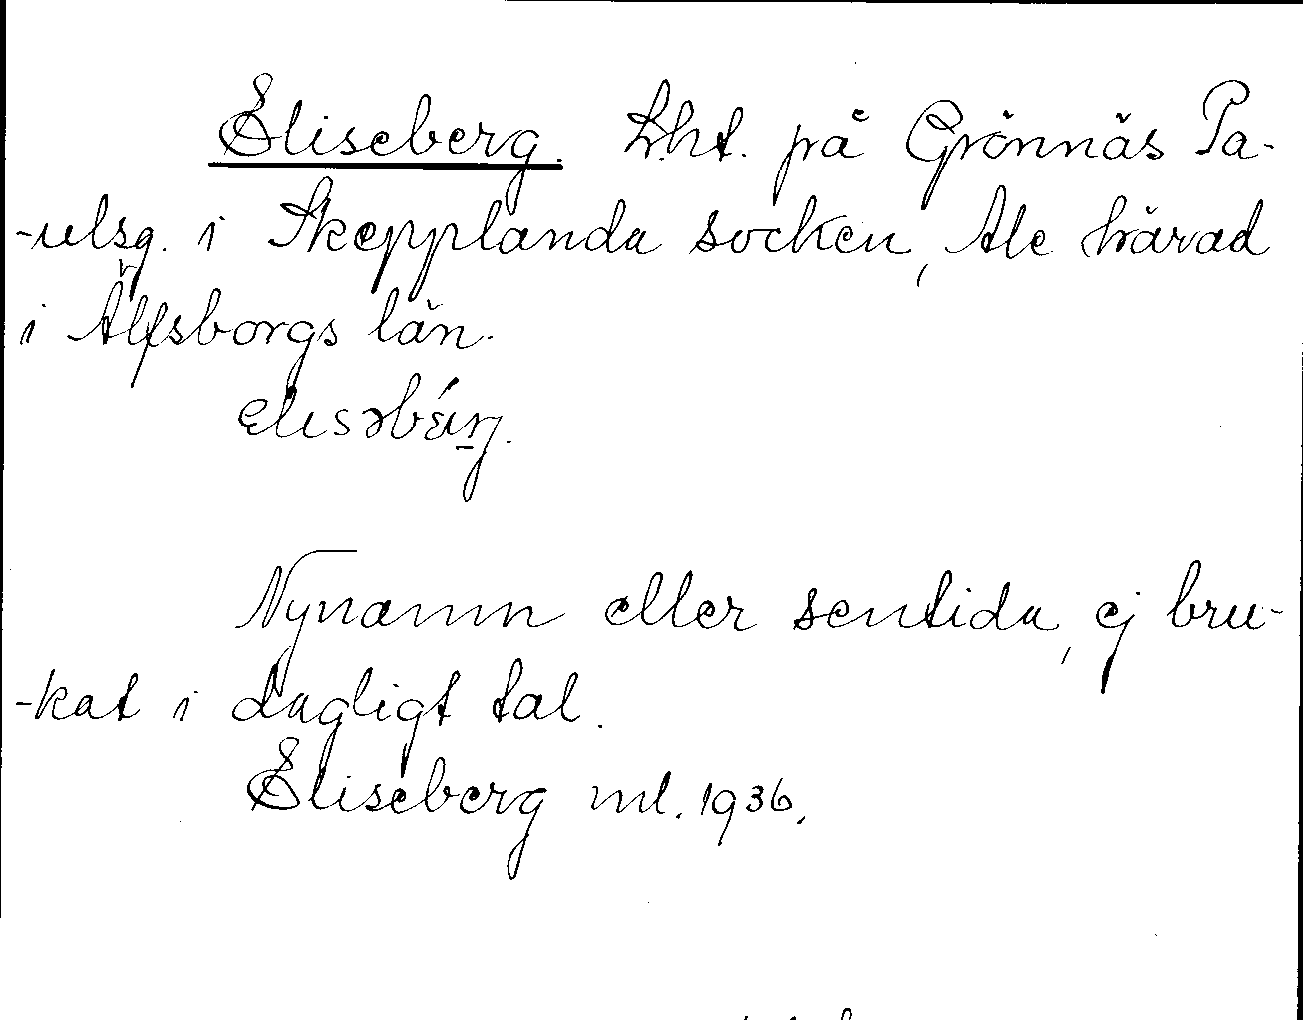 Eliseberg. Lht. på Grönnäs Pa-
-ulsg. i Skepplanda socken, Ale härad
i Älfsborgs län.
Nynamn eller sentida, ej bru-
-kat i dagligt tal.
Eliseberg ml. 1936.